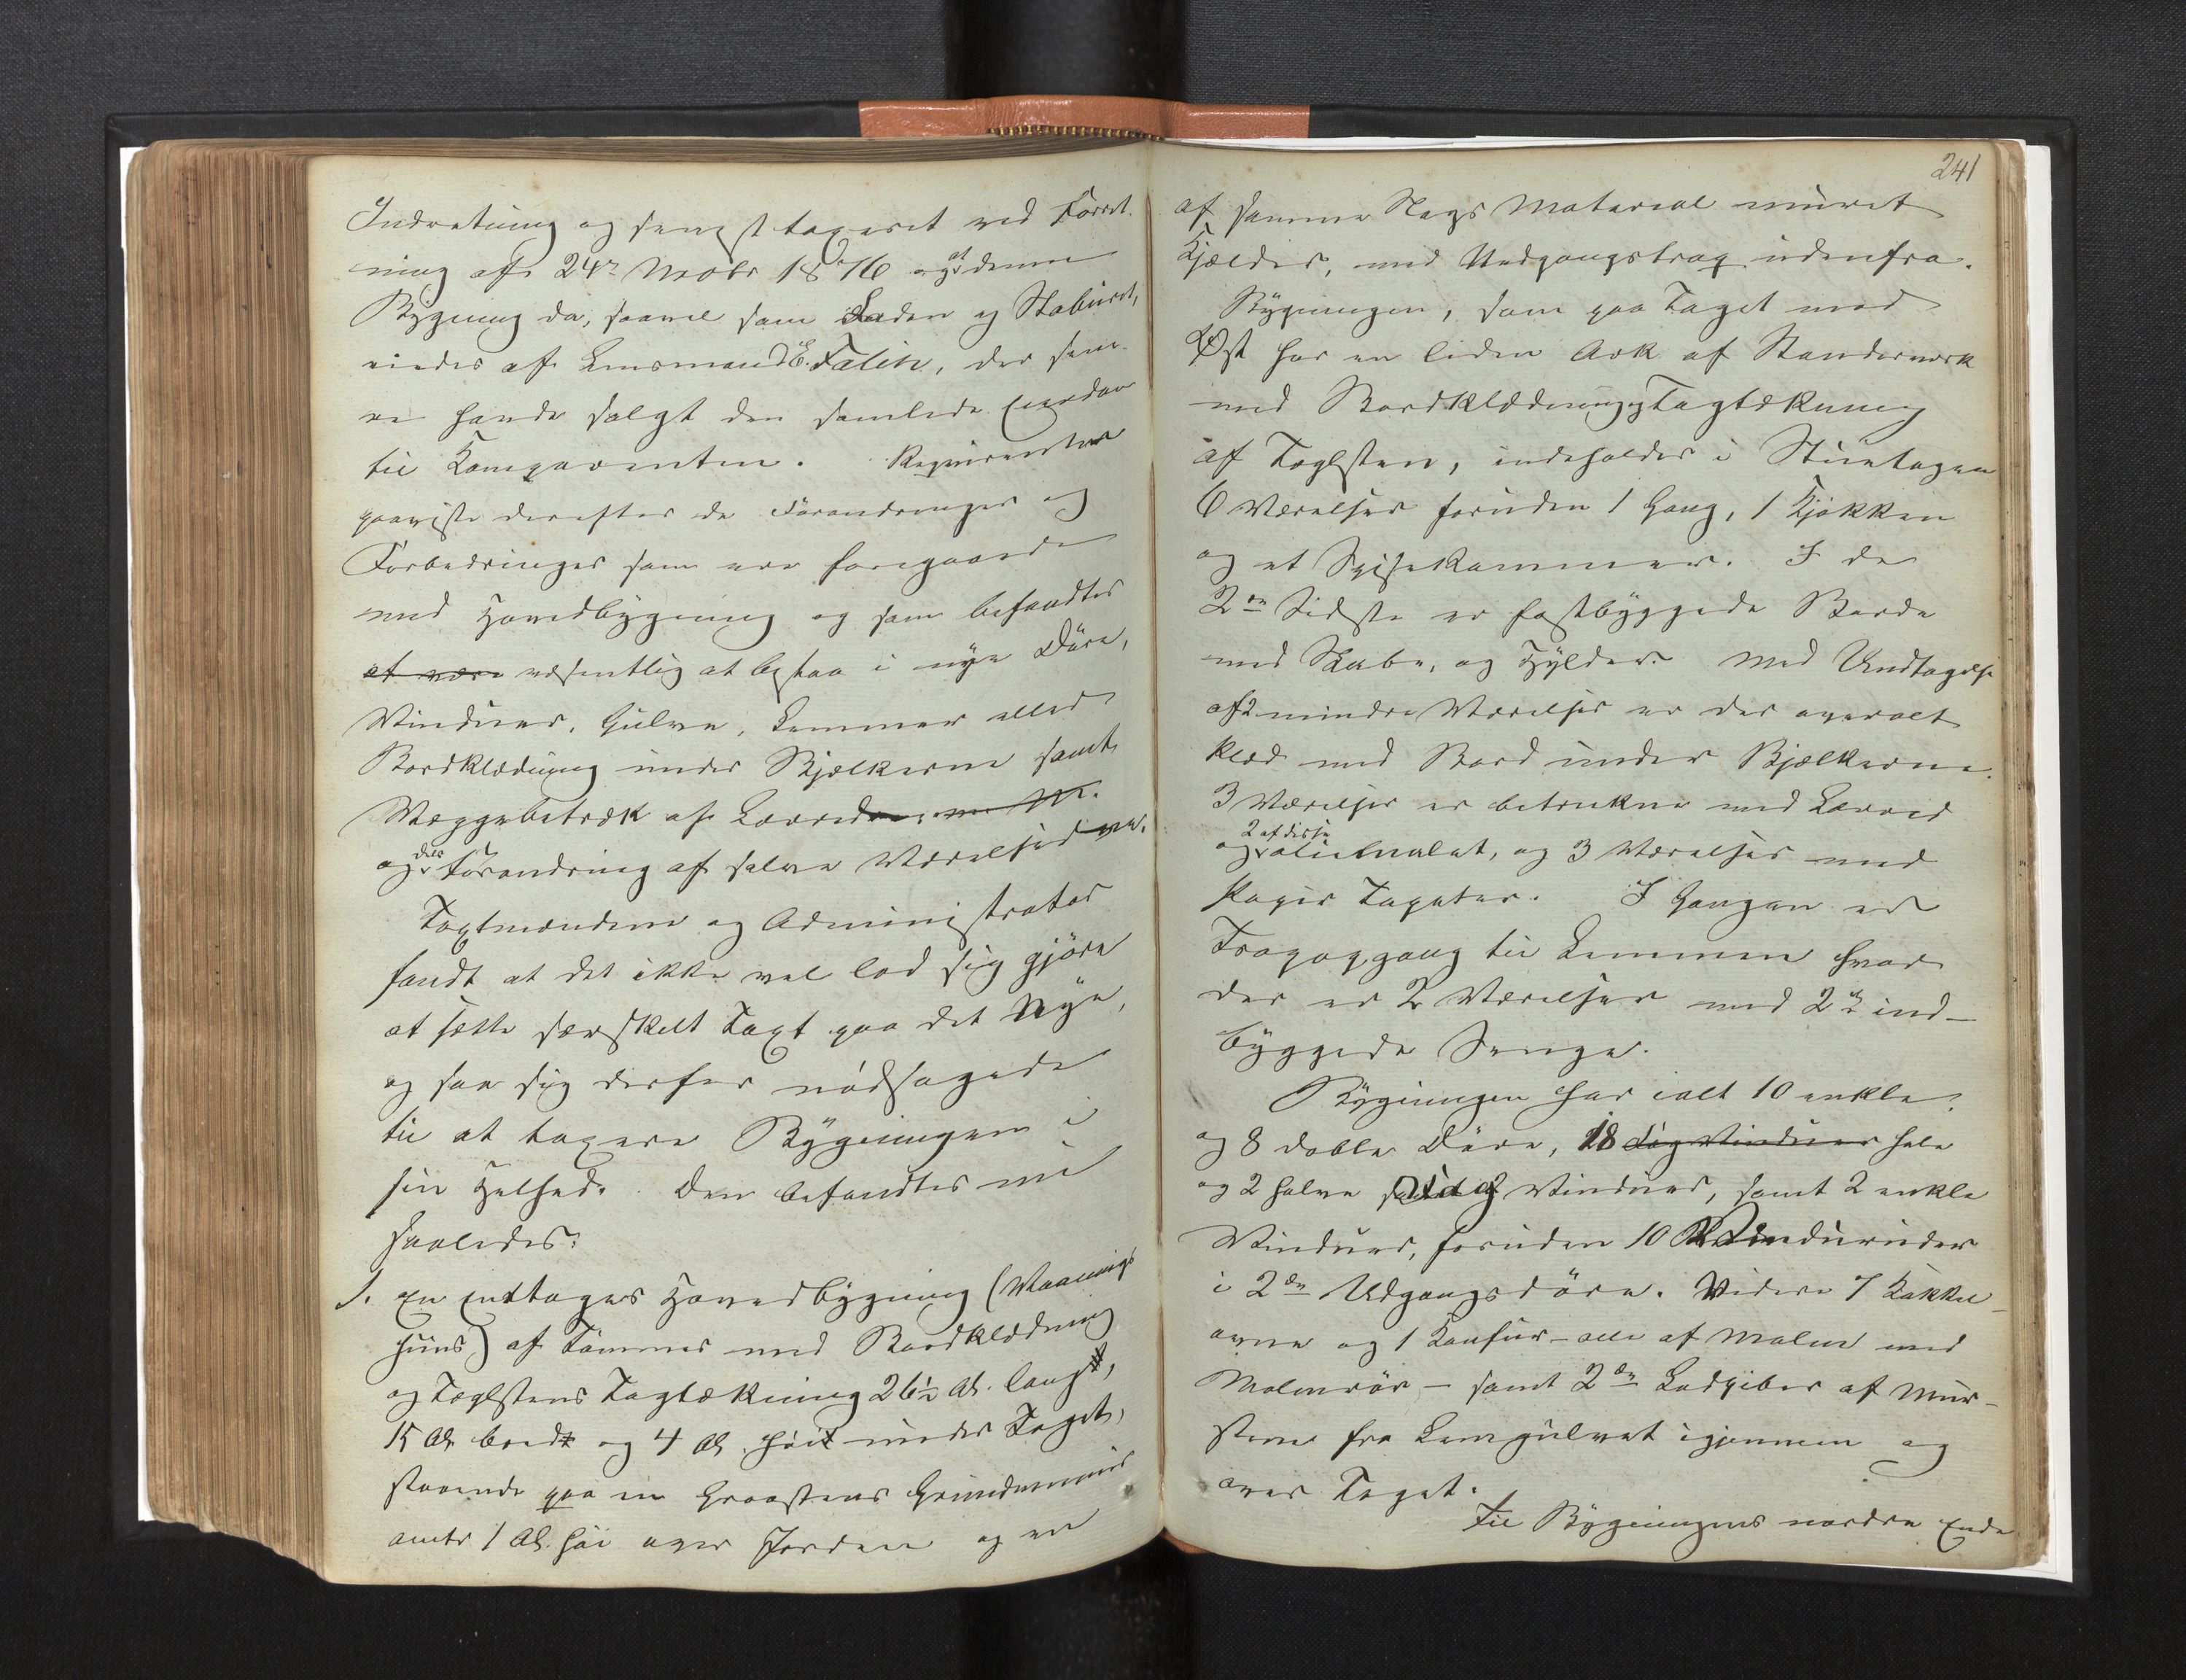 Indretning og senest taxeret ved Forret-
ning af 24de Novbr 1876 og at denne
Bygning da, saavel som Laden og Staburet,
eiedes af Lensmand E. Falch, der sene-
re havde solgt den samlede Eiendom
til Komparenten. Rekvirenten
paaviste derefter de Forandringer og
Forbedringer som var foregaaede
med Hovedbygning og som befandtes
at være væsentlig at bestaa i nye Døre,
Vinduer, Gulve, Lemmer eller
Bordklædning under Bjælkerne samt
Væggebetræk af Lærred
og dels Forandring af selve Værelserne.
Taxtmændene og Administrator
fandt at det ikke vel lod sig gjøre
at sætte særskilt Taxt paa det Nye,
og saa sig derfor nødsagede
til at taxere Bygningen i
sin Helhed. Den befandtes nu
saaledes:
1. En Entages Hovedbygning (Vaanings
huus) af Tømmer med Bordklædning
og Teglstens Tagtækning 26½ Al. lang,
15 Al. bred og 4 Al. høi under Taget,
staaende paa en Graastens Grundmuur
omtr 1 Al. høi over Jorden og en
241
af samme Slags Materiale muret
Kjælder, med Nedgangstrap udenfra.
Bygningen, som paa Taget mod
Øst har en liden Ark af Standerverk
med Bordklædning og Tagtækning
af Teglsten, indeholder i Stueetagen
6 Værelser foruden 1 Gang, 1 Kjøkken
og et Spisekammer. I de
2de Sidste er fastbyggede Borde
med Skabe, og Hylder. Med Undtagelse
af 2 mindre Værelser er der overalt
klæd med Bord under Bjælkerne.
3 Værelser er betrukne med Lærred
og 2 af disse oliemalet, og 3 Værelser med
Papir Tapeter. I Gangen er
Trapopgang til Lemmen hvor
der er 2 Værelser med 2de ind-
byggede Senge.
Bygningen har ialt 10 enkle
og 8 doble Døre, 18 Fag Vinduer hele
og 2 halve Fag Vinduer, samt 2 enkle
Vinduer, foruden 10 Vinduruder
i 2de Udgangsdøre. Videre 7 Kakkel-
ovne og 1 Komfur – alle af Malm med
Malmrør – samt 2de Lodpiber af Mur-
stene fra Lemgulvet igjennem og
over Taget.
Til Bygningens nordre Ende